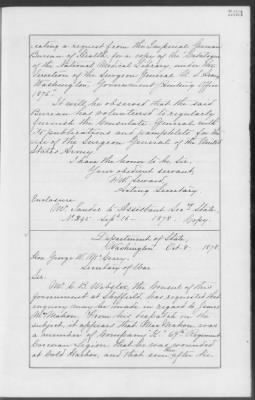 cating a request from the Imperial German
Bureau of Health, for a copy of the Catalogue
of the National Medical Library, under the
direction of the Surgeon General U.S. Army
Washington, Government Printing Office
187
It will be observed that the said
Bureau has volunteered to regularly
furnish the Consulate General with
its publications and pamphlets for the
use of the Surgeon General of the United
States Army.
I have the honor to be, Sir,
Your obedient servant,
F.W. Seward,
Acting Secretary.
Enclosure:
Mr. to Assistant Secy. State,
No. 245 Sept. 16 – 1878. Copy.
Department of State,
Washington Oct. 8 – 1878.
Hon. George W. McCrary,
Secretary of War.
Sir:
Mr. C. B. Webster, the Consul of this
government at Sheffield, has requested that
inquiry may be made in regard to James
McMahon. From his despatch on the
subject, it appears that MacMahon was
a member of Company "K" 69th Regiment
Corcoran Legion. That he was wounded
at Cold Harbor, and that since then he